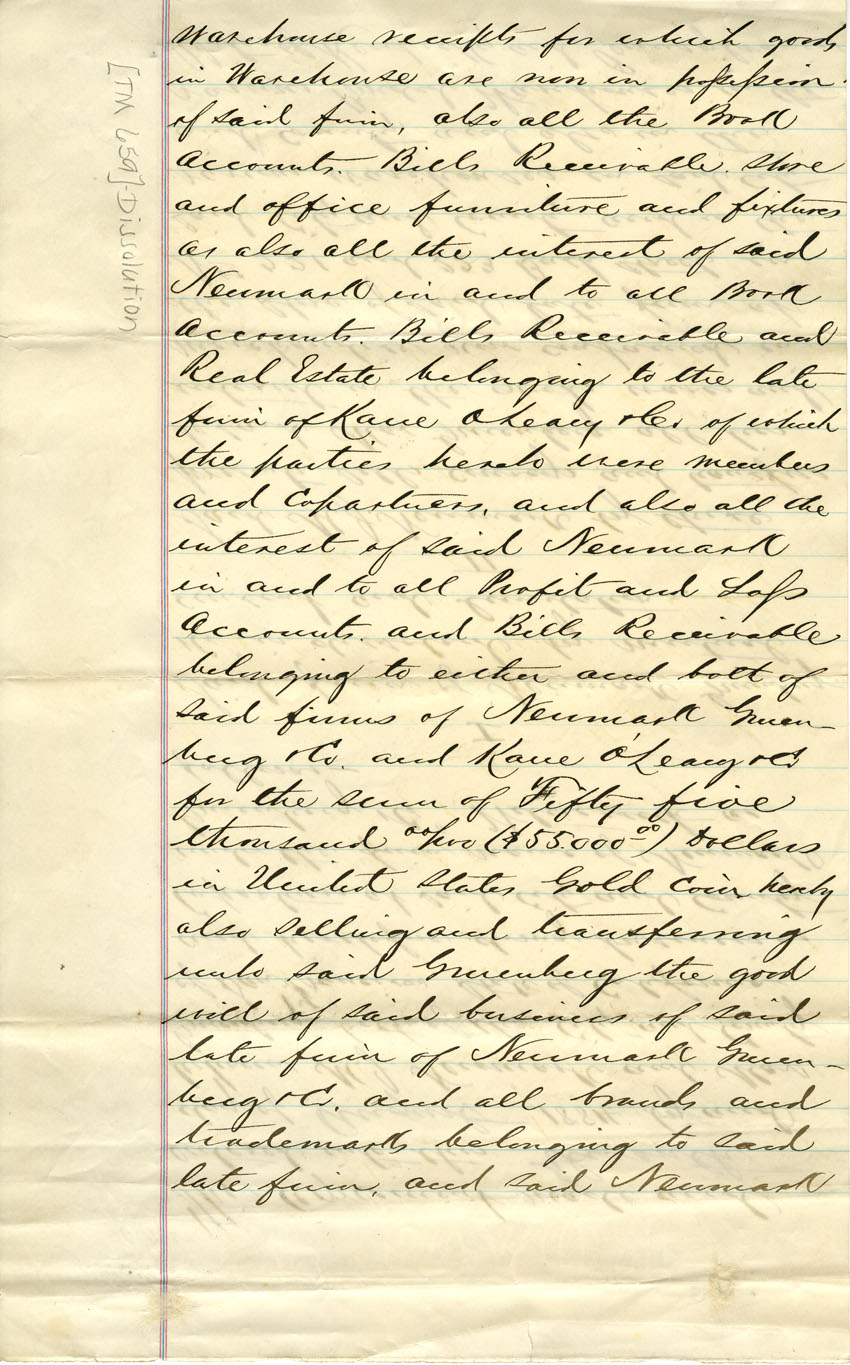 Warehouse receipts for which goods
in Warehouse are now in possession
of said firm, also all the Book
Accounts. Bills Receivable. store
and office furniture and fixtures
as also all the interest of said
Neumark in and to all Book
Accounts. Bills Receivable and
Real Estate belonging to the late
firm of Kane O'Leary & Co. of which
the parties hereto were members
and Copartners, and also all the
interest of said Neumark
in and to all Profit and Loss
Accounts. and Bills Receivable
belonging to either and both of
said firms of Neumark Gruen-
berg & Co. and Kane O'Leary & Co
for the sum of Fifty five
thousand 00/100 ($55.000 00) Dollars
in United States Gold Coin, hereby
also selling and transferring
unto said Gruenberg the good
will of said business of said
late firm of Neumark Gruen-
berg & Co. and all brands and
trademarks belonging to said
late firm, and said Neumark
[TM 659] Dissolution